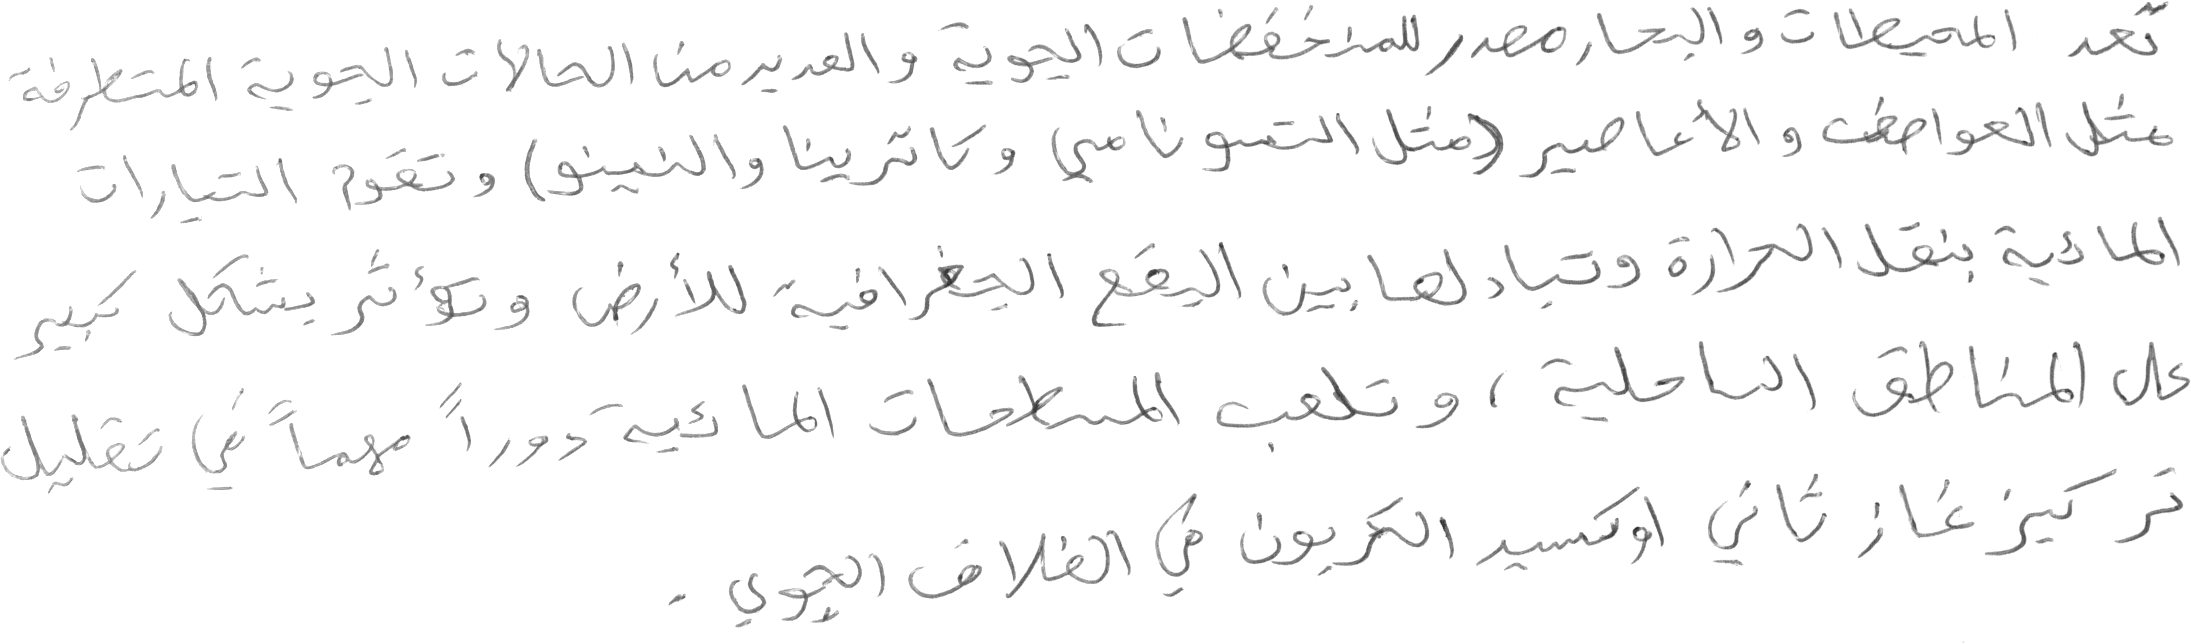 تعد المحيطات والبحار مصدر للمنخفضات الجوية والعديد من الحالات الجوية المتطرفة
مثل العواصف والأعاصير (مثل التسونامي وكاترينا والنينو) وتقوم التيارات
المائية بنقل الحرارة وتبادلها بين البقع الجغرافية للأرض وتؤثر بشكل كبير
على المناطق الساحلية، وتلعب المسطحات المائية دوراً مهماً في تقليل
تركيز غاز ثاني اوكسيد الكربون في الغلاف الجوي .